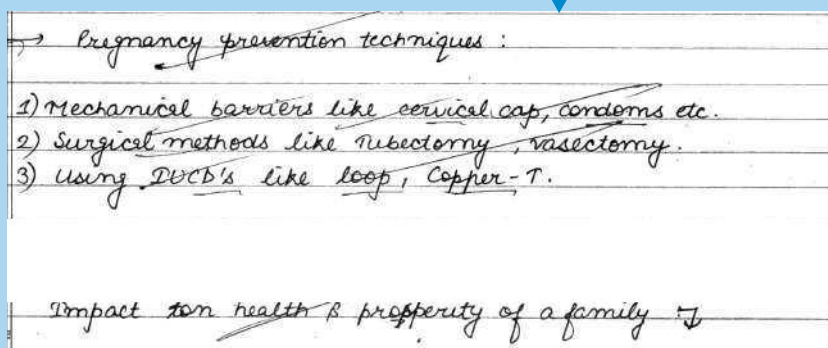 → Pregnancy prevention techniques :
1) Mechanical barriers like cervical cap, condoms etc.
2) Surgical methods like Tubectomy, vasectomy.
3) Using IUCD's like loop, Copper-T.
Impact on health & prosperity of a family :-